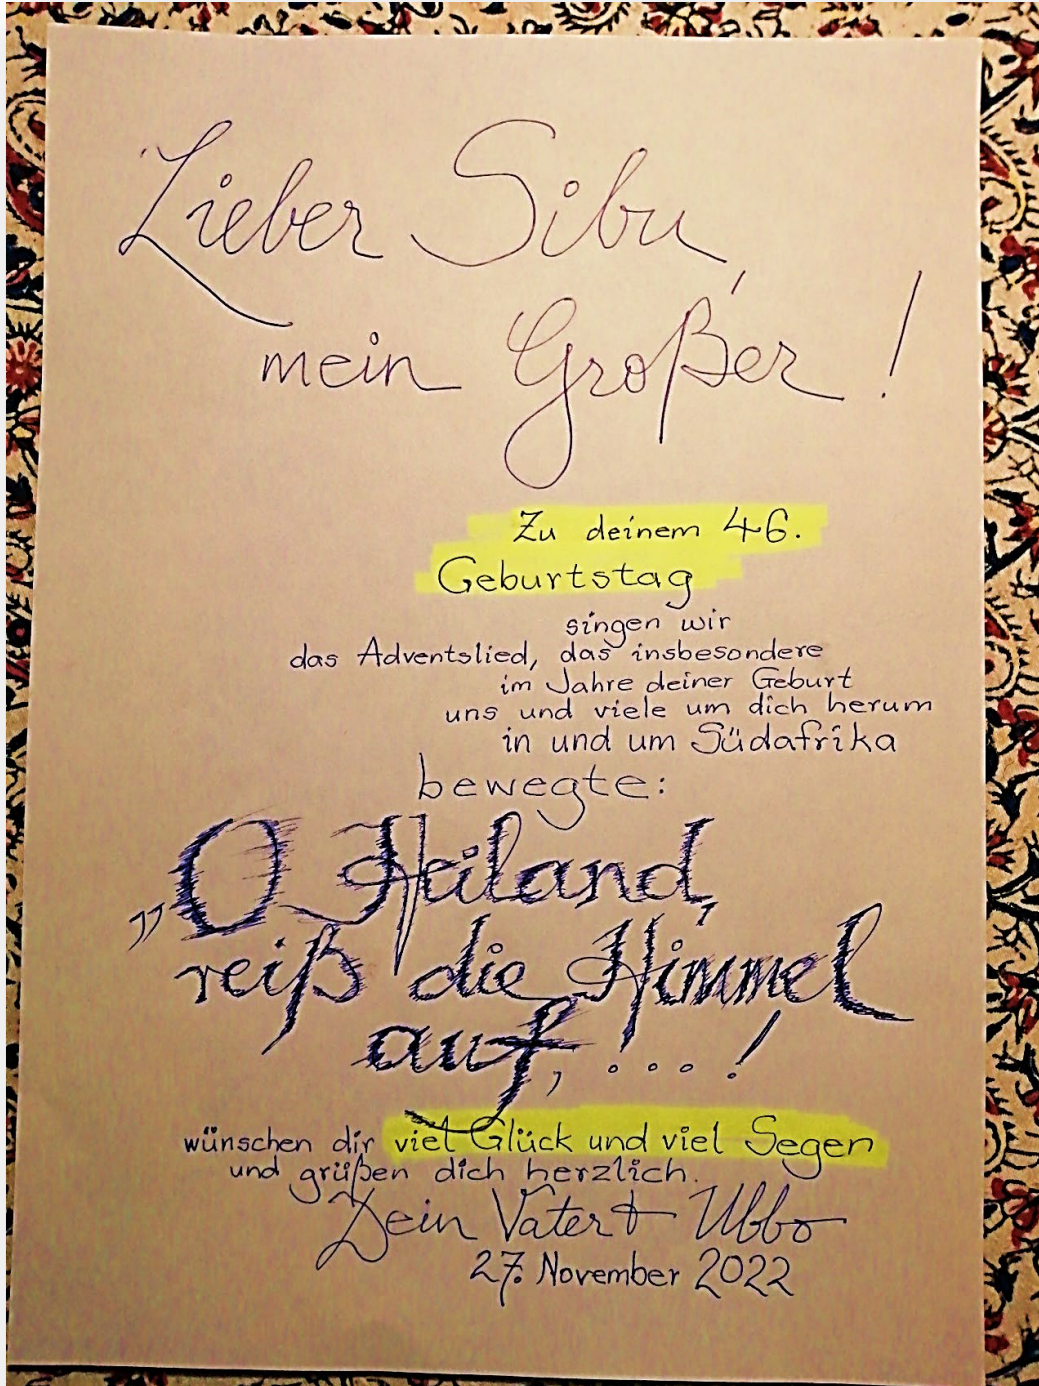 Lieber Sibu,
mein Großer!
Zu deinem 46.
Geburtstag
singen wir
das Adventslied, das insbesondere
im Jahre deiner Geburt
uns und viele um dich herum
in und um Südafrika
bewegte:
„O Heiland,
reiß die Himmel
auf, ...!
wünschen dir viel Glück und viel Segen
und grüßen dich herzlich.
Dein Vater + Ubbo
27. November 2022